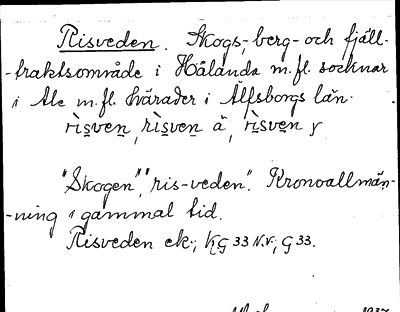 Risveden. Skogs-, berg- och fjäll-
-traktsområde i Hålanda m.fl. socknar
i Ale m.fl. härader i Älfsborgs län.
rìsven, rìsven å, rìsven y
"Skogen", "ris-veden". Kronoallmän-
-ning i gammal tid.
Risveden ek; KG 33 N.V.; G 33.